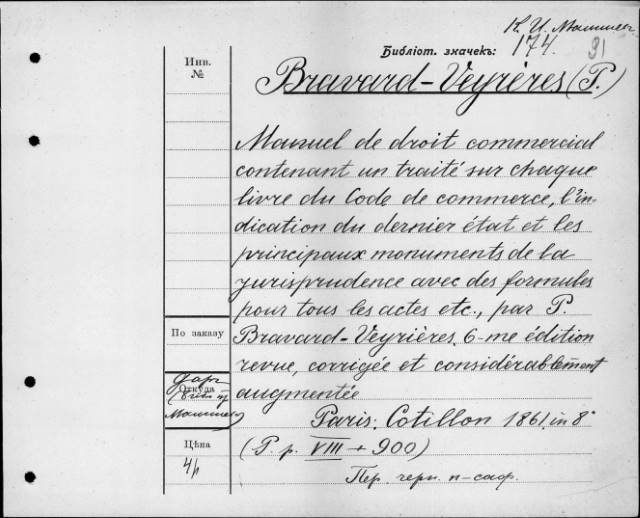 К. И. Малышев
Библіот. значекъ: 174. 91
Инв.
№
Bravard-Veyrières (P.)
Manuel de droit commercial
contenant un traité sur chaque
livre du Code de commerce, l'in-
dication du dernier état et les
principaux monuments de la
jurisprudence avec des formules
pour tous les actes etc., par P.
По заказу
Bravard-Veyrières. 6-me édition
revue, corrigée et considérablement
augmentée
даръ
Откуда
Малышева
Paris. Cotillon 1861. in 8°
Цѣна
4 р
(P. p. VIII + 900)
Пер. черн. п-саф.